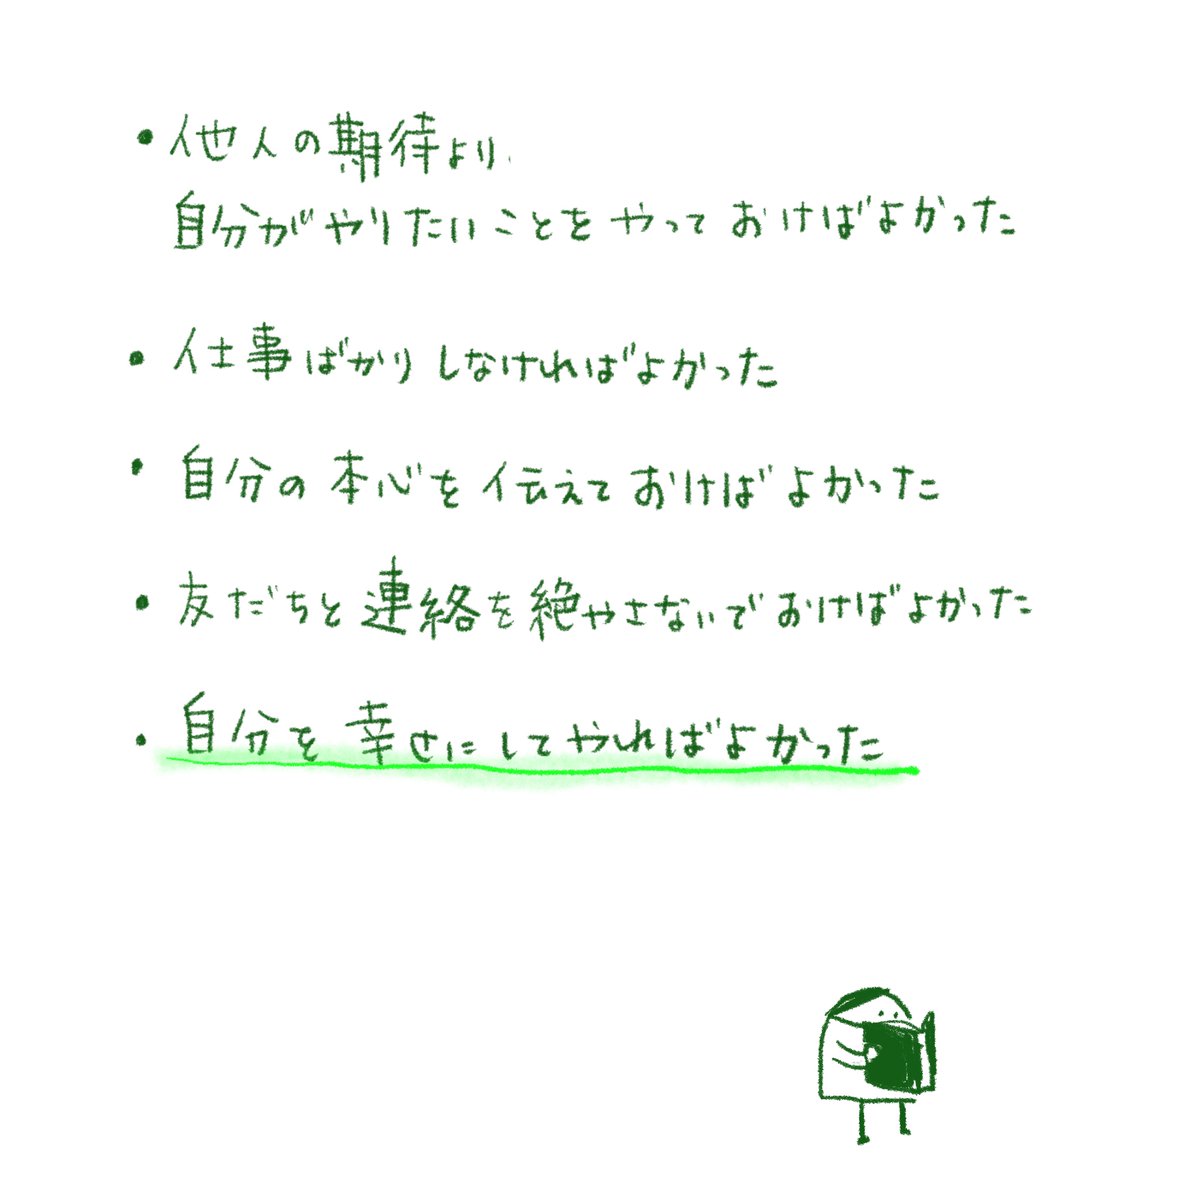 ・他人の期待より、
自分がやりたいことをやっておけばよかった
・仕事ばかりしなければよかった
・自分の本心を伝えておけばよかった
・友だちと連絡を絶やさないでおけばよかった
・自分を幸せにしてやればよかった